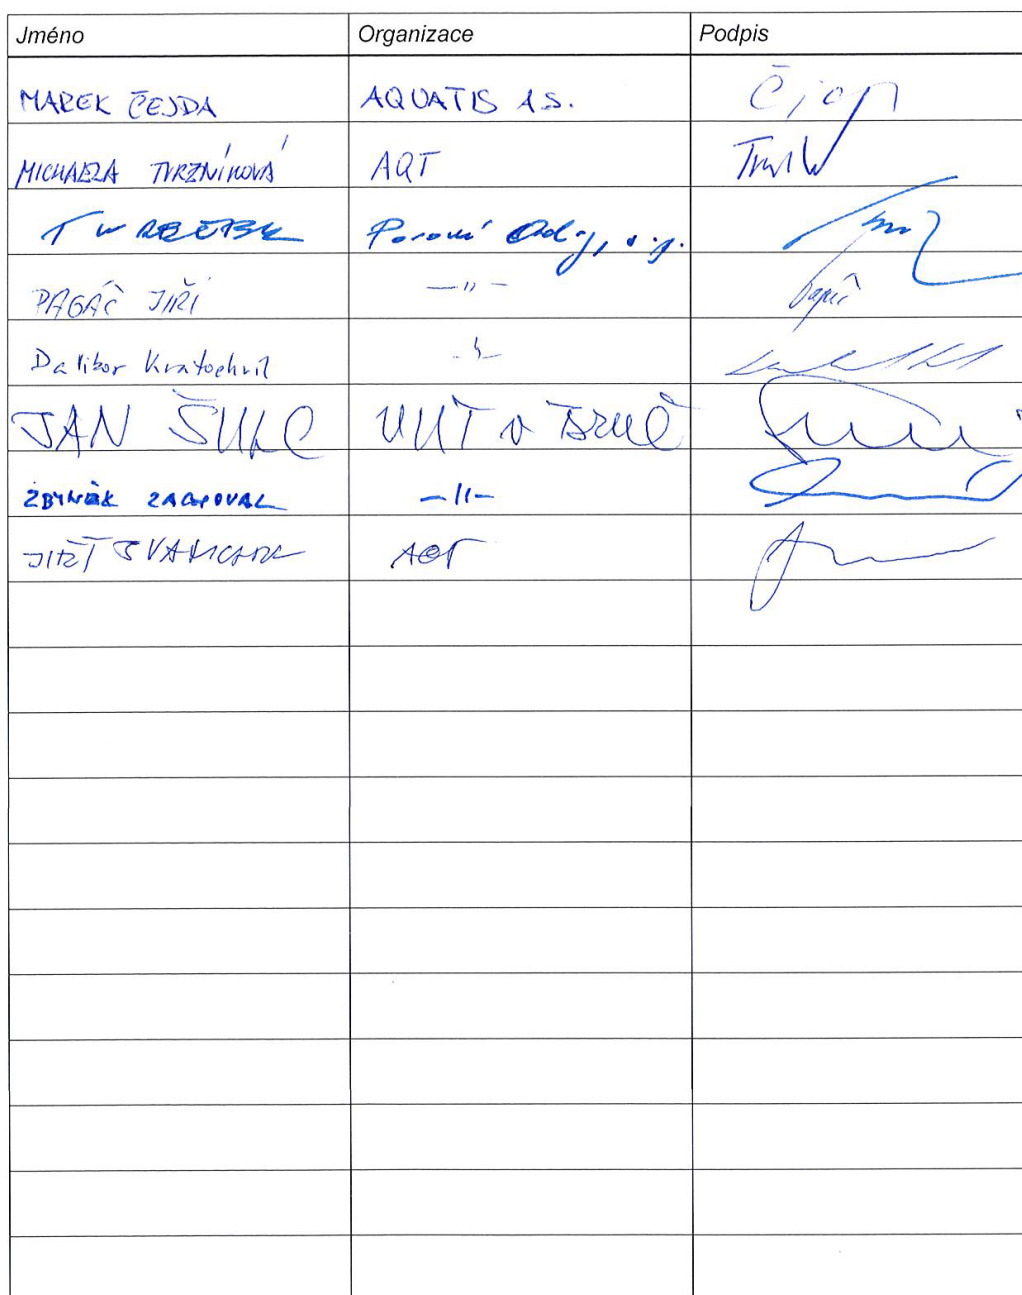 Jméno Organizace Podpis
MAREK ČEJDA AQUATIS A.S.
MICHAELA TVRZNÍKOVÁ AQT
Povodí Odry, s.p.
PAGÁČ JIŘÍ —"—
Dalibor Kratochvil —"—
JAN ŠULC VUT v BRNĚ
ZBYNĚK ZACHOVAL —"—
JIŘÍ ŠVANCARA AQT